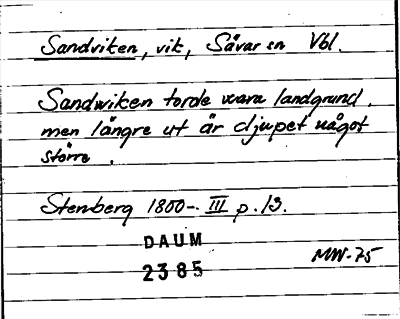 Sandviken, vik, Sävar sn Vbl.
Sandwiken torde vara landgrund,
men längre ut är djupet något
större.
Stenberg 1800-. III p.13.
DAUM
2385
MW-75